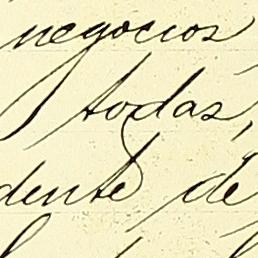 negocios
todas,
dente de